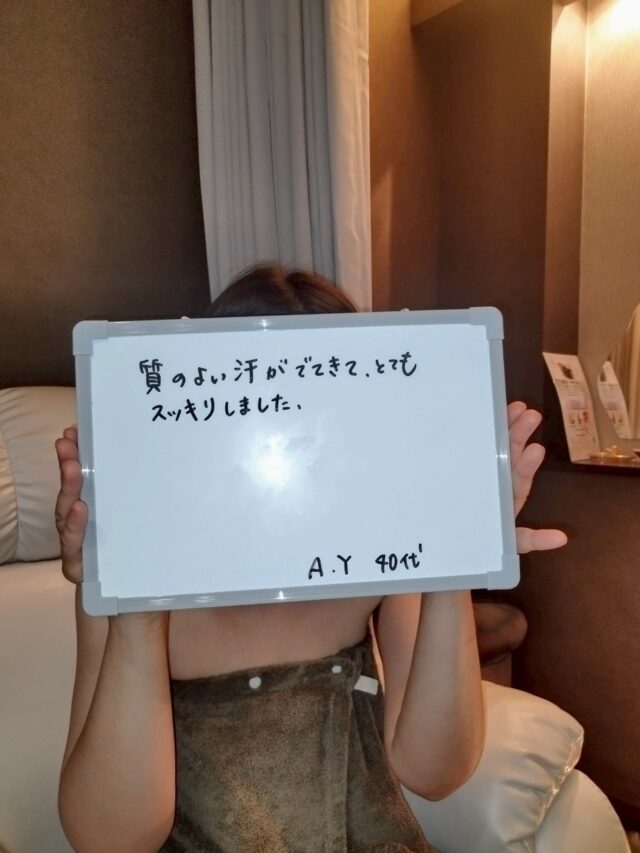 質のよい汗がでてきて、とても
スッキリしました。
A.Y 40代